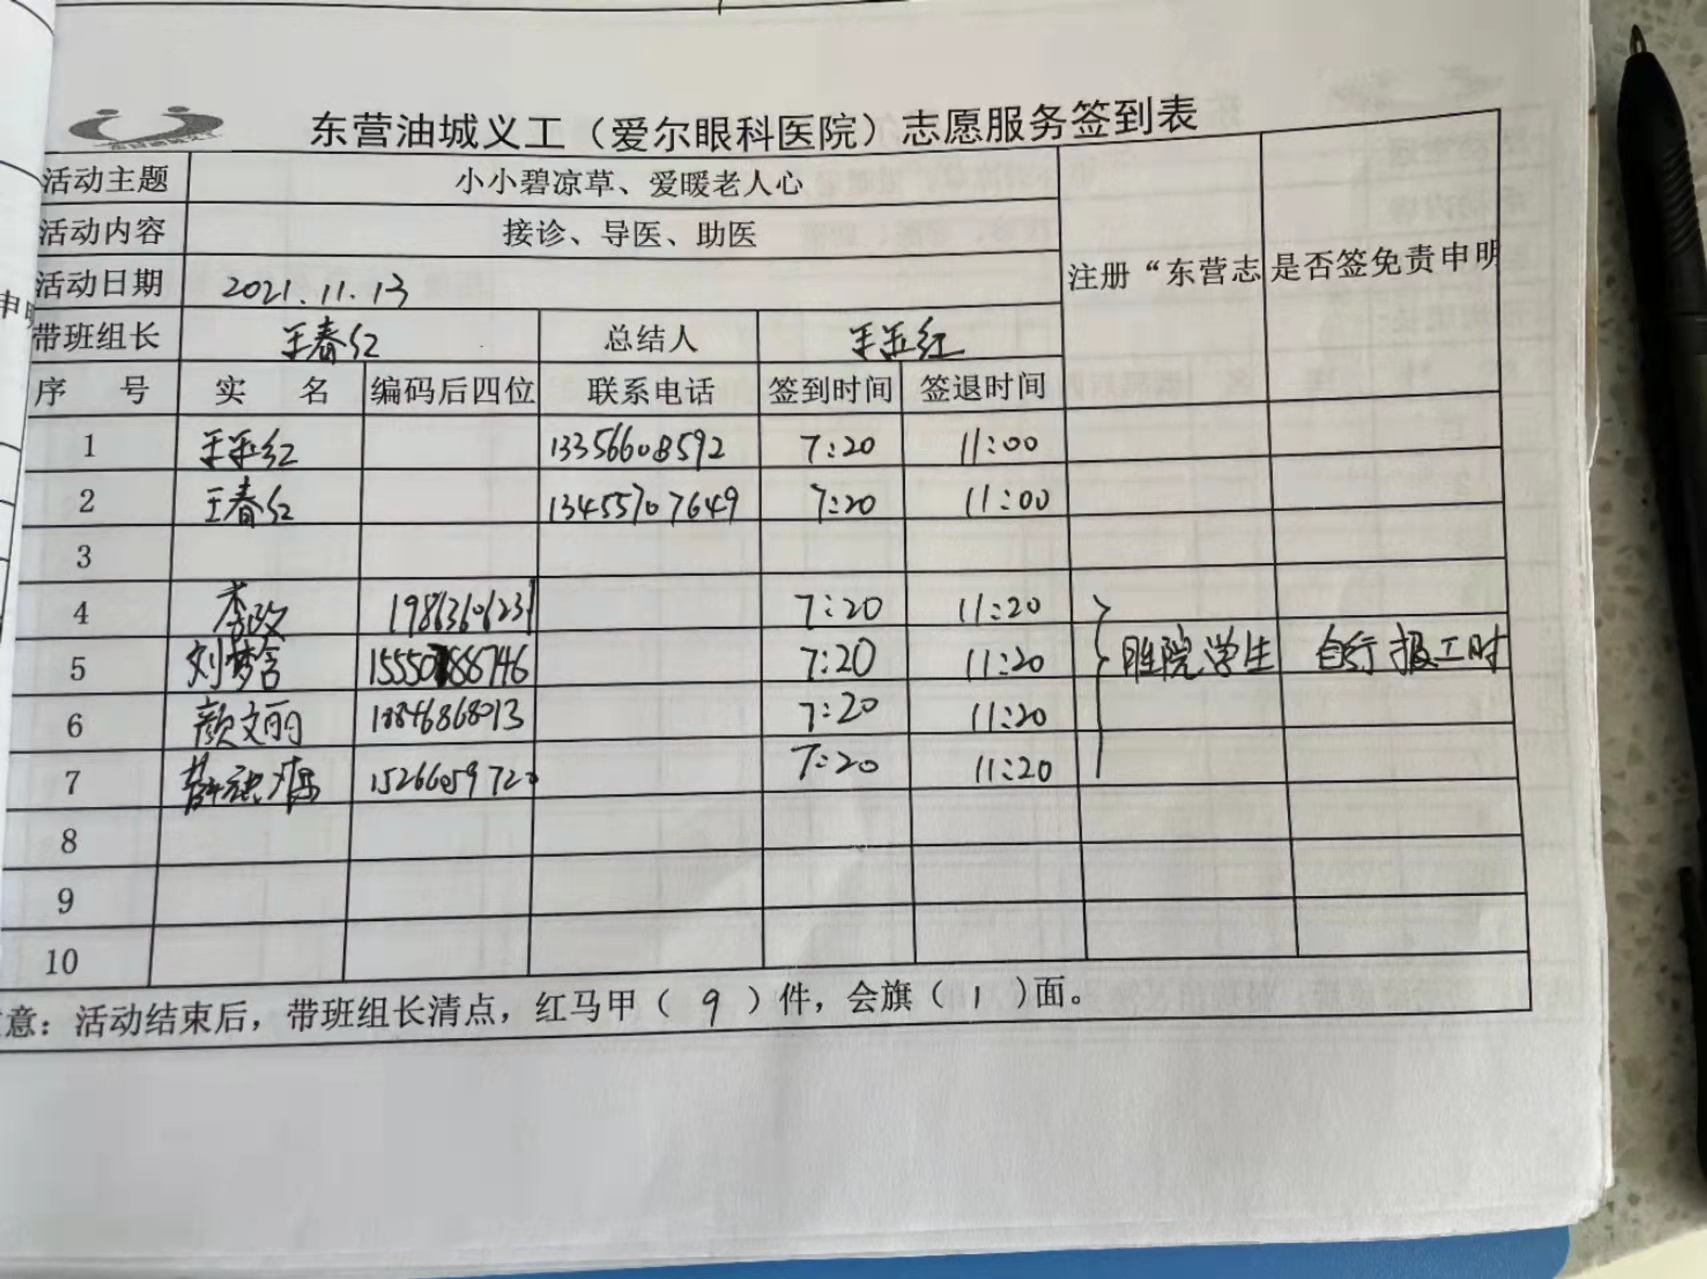 东营油城义工（爱尔眼科医院）志愿服务签到表
活动主题 小小碧凉草、爱暖老人心
活动内容 接诊、导医、助医
活动日期 2021.11.13 注册“东营志 是否签免责申明
带班组长 王春红 总结人 王玉红
序 号 实 名 编码后四位 联系电话 签到时间 签退时间
1 王玉红 13356608592 7:20 11:00
2 王春红 13455707649 7:20 11:00
3
4 李政 19863606231 7:20 11:20
5 刘梦含 15550788746 7:20 11:20 胜院学生 自行报工时
6 颜文丽 18846868013 7:20 11:20
7 1526605972 7:20 11:20
8
9
10
意：活动结束后，带班组长清点，红马甲（9）件，会旗（1）面。